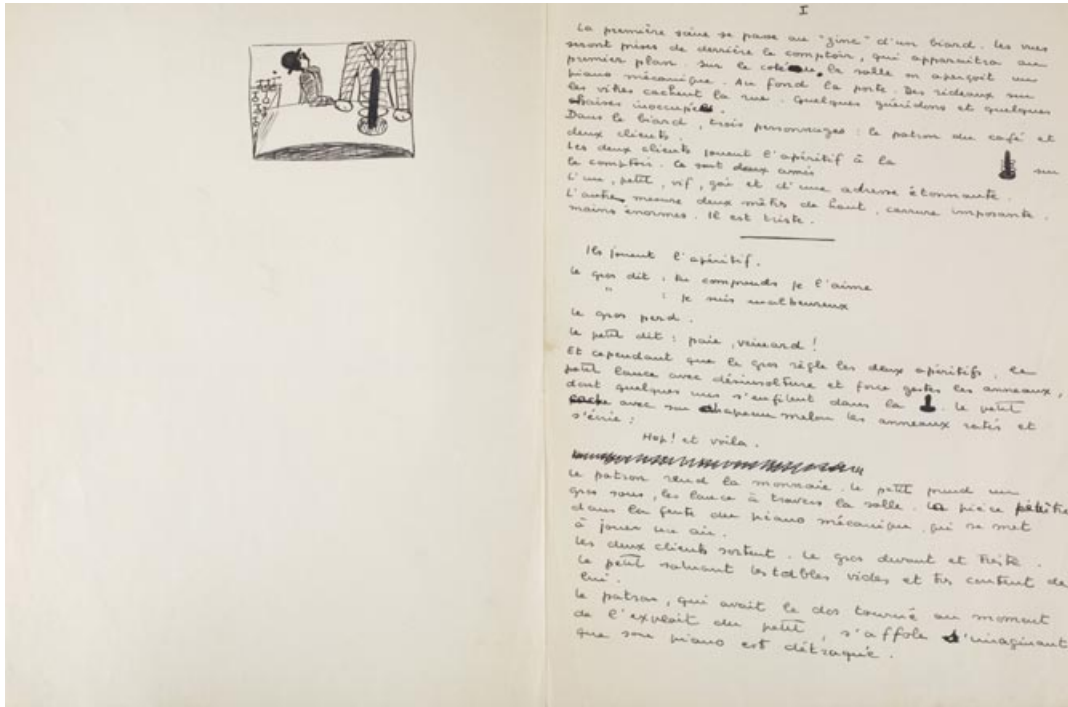 I
La première scène se passe au "zinc" d'un biard. Les vues
seront prises de derrière le comptoir, qui apparaitra au
premier plan. Sur le coté de la salle on aperçoit un
piano mécanique. Au fond la porte. Des rideaux sur
les vitres cachent la rue. Quelques guéridons et quelques
chaises inoccupées.
Dans le biard, trois personnages : le patron du café et
deux clients.
Les deux clients jouent l'apéritif à la sur
le comptoir. Ce sont deux amis
L'un, petit, vif, gai et d'une adresse étonnante.
L'autre mesure deux mètres de haut, carrure imposante,
mains énormes. Il est triste.
Ils jouent l'apéritif.
Le gros dit : tu comprends je l'aime
" : je suis malheureux
Le gros perd.
Le petit dit : paie, veinard !
Et cependant que le gros règle les deux apéritifs, le
petit lance avec désinvolture et force gestes les anneaux,
dont quelques uns s'enfilent dans la . Le petit
avec son chapeau melon les anneaux ratés et
s'écrie :
Hop! et voila.
Le patron rend la monnaie. Le petit prend un
gros sous, les lance à travers la salle. La pièce pénètre
dans la fente du piano mécanique, qui se met
à jouer un air.
Les deux clients sortent. Le gros devant et triste.
Le petit saluant les tables vides et très content de
lui.
Le patron, qui avait le dos tourné au moment
de l'exploit du petit, s'affole s'imaginant
que son piano est détraqué.